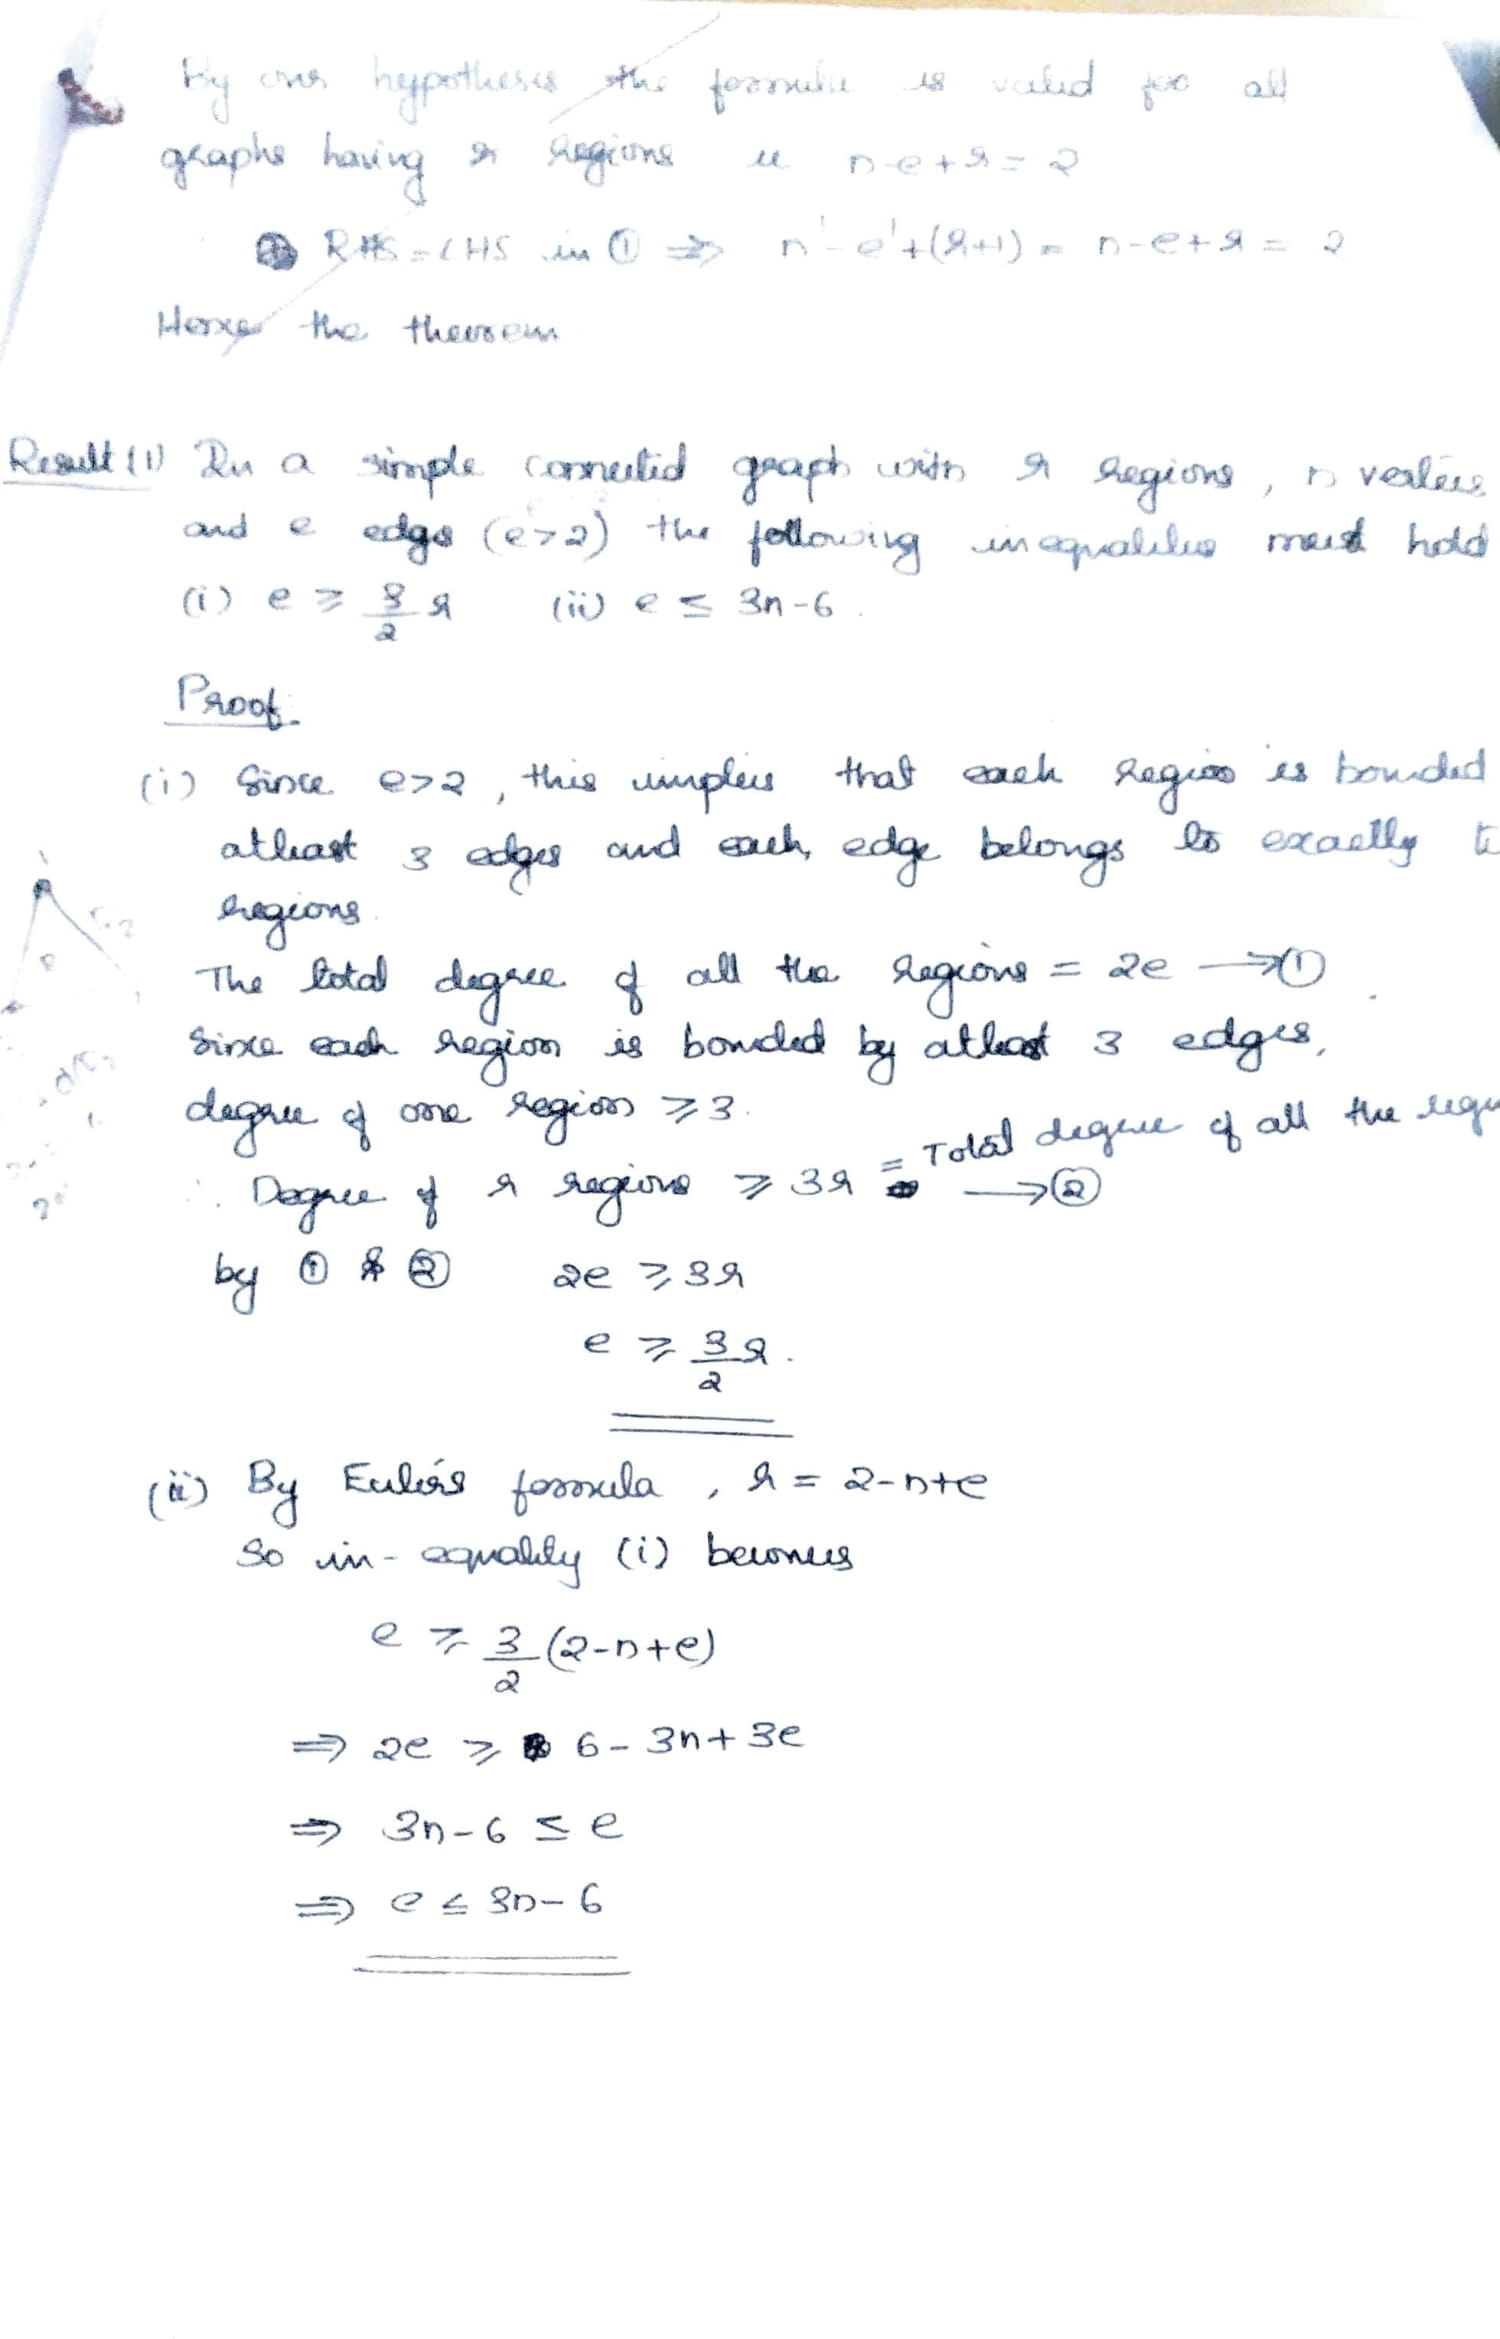 By our hypothesis the formula is valid for all
graphs having r regions ie n-e+r = 2
RHS = LHS in ① ⇒ n'-e'+(r+1) = n-e+r = 2
Hence the theorem
Result (1) In a simple connected graph with r regions, n vertices
and e edges (e>2) the following inequalities must hold
(i) e ≥ 3/2 r (ii) e ≤ 3n-6.
Proof
(i) Since e>2, this implies that each region is bounded
atleast 3 edges and each edge belongs to exactly
regions.
The total degree of all the regions = 2e → ①
Since each region is bonded by atleast 3 edges,
degree of one region ≥ 3.
∴ Degree of r regions ≥ 3r = Total degree of all the
→ ②
by ① & ② 2e ≥ 3r
e ≥ 3/2 r.
(ii) By Euler's formula, r = 2-n+e
So in-equality (i) becomes
e ≥ 3/2 (2-n+e)
⇒ 2e ≥ 6 - 3n + 3e
⇒ 3n-6 ≤ e
⇒ e ≤ 3n-6